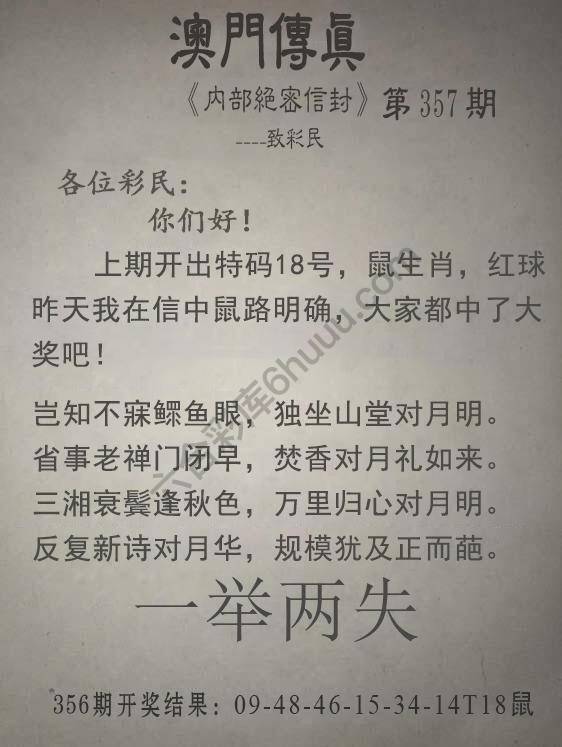 澳門傳眞
《内部絕密信封》第357期
----致彩民
各位彩民：
你们好！
上期开出特码18号，鼠生肖，红球
昨天我在信中鼠路明确，大家都中了大
奖吧！
岂知不寐鳏鱼眼，独坐山堂对月明。
省事老禅门闭早，焚香对月礼如来。
三湘衰鬓逢秋色，万里归心对月明。
反复新诗对月华，规模犹及正而葩。
一举两失
356期开奖结果：09-48-46-15-34-14T18鼠
六合彩库6huuu.com